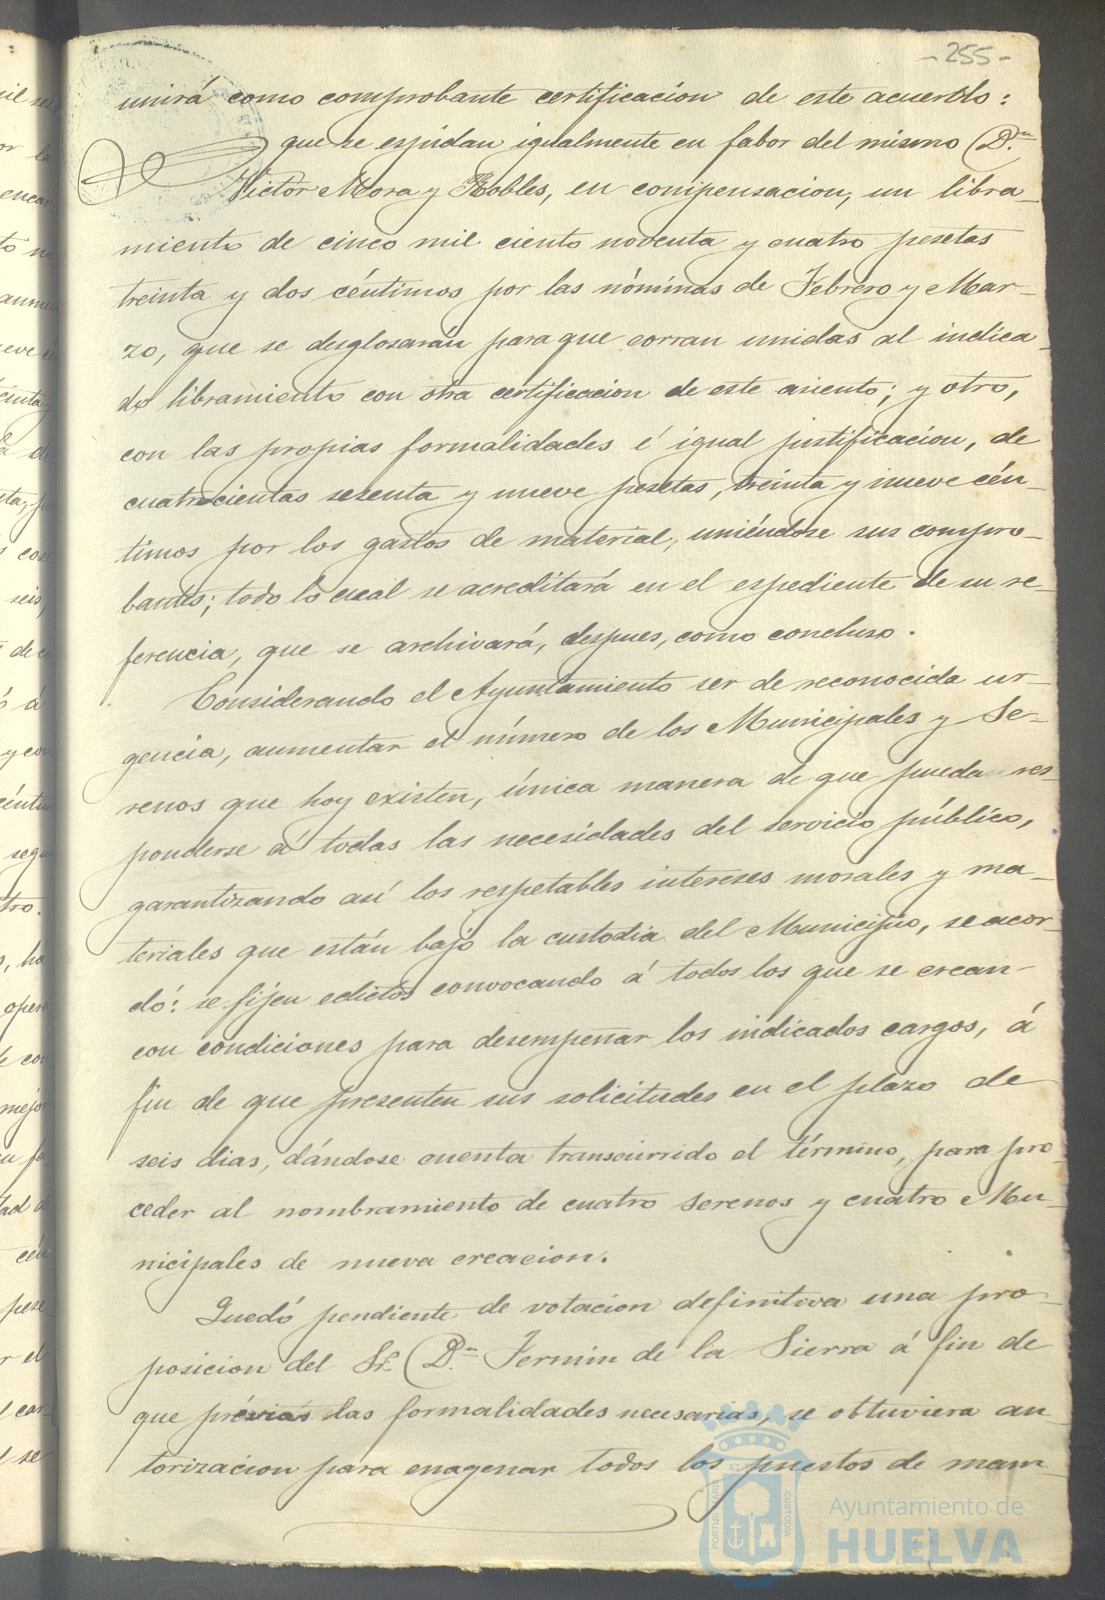 -255-
unirá como comprobante certificacion de este acuerdo:
que se espidan igualmente en fabor del mismo D.ⁿ
Victor Mora y Robles, en compensacion, un libra-
miento de cinco mil ciento noventa y cuatro pesetas
treinta y dos céntimos por las nóminas de Febrero y Mar-
zo, que se desglosarán para que corran unidas al indica-
do libramiento con otra certificacion de este asiento; y otro,
con las propias formalidades é igual justificacion, de
cuatrocientas sesenta y nueve pesetas, treinta y nueve cén-
timos por los gastos de material, uniéndose sus compro-
bantes; todo lo cual se acreditará en el espediente de su re-
ferencia, que se archivará, despues, como concluso.
Considerando el Ayuntamiento ser de reconocida ur-
gencia, aumentar el número de los Municipales y Se-
renos que hoy existen, única manera de que pueda res-
ponderse á todas las necesidades del servicio público,
garantizando así los respetables intereses morales y ma-
teriales que están bajo la custodia del Municipio, se acor-
dó: se fijen edictos convocando á todos los que se crean
con condiciones para desempeñar los indicados cargos, á
fin de que presenten sus solicitudes en el plazo de
seis dias, dándose cuenta transcurrido el término, para pro-
ceder al nombramiento de cuatro Serenos y cuatro Mu-
nicipales de nueva creacion.
Quedó pendiente de votacion definitiva una pro-
posicion del Sr. D.ⁿ Fermin de la Sierra á fin de
que prévias las formalidades necesarias, se obtuviera au-
torizacion para enagenar todos los puestos de mam-
Ayuntamiento de
HUELVA